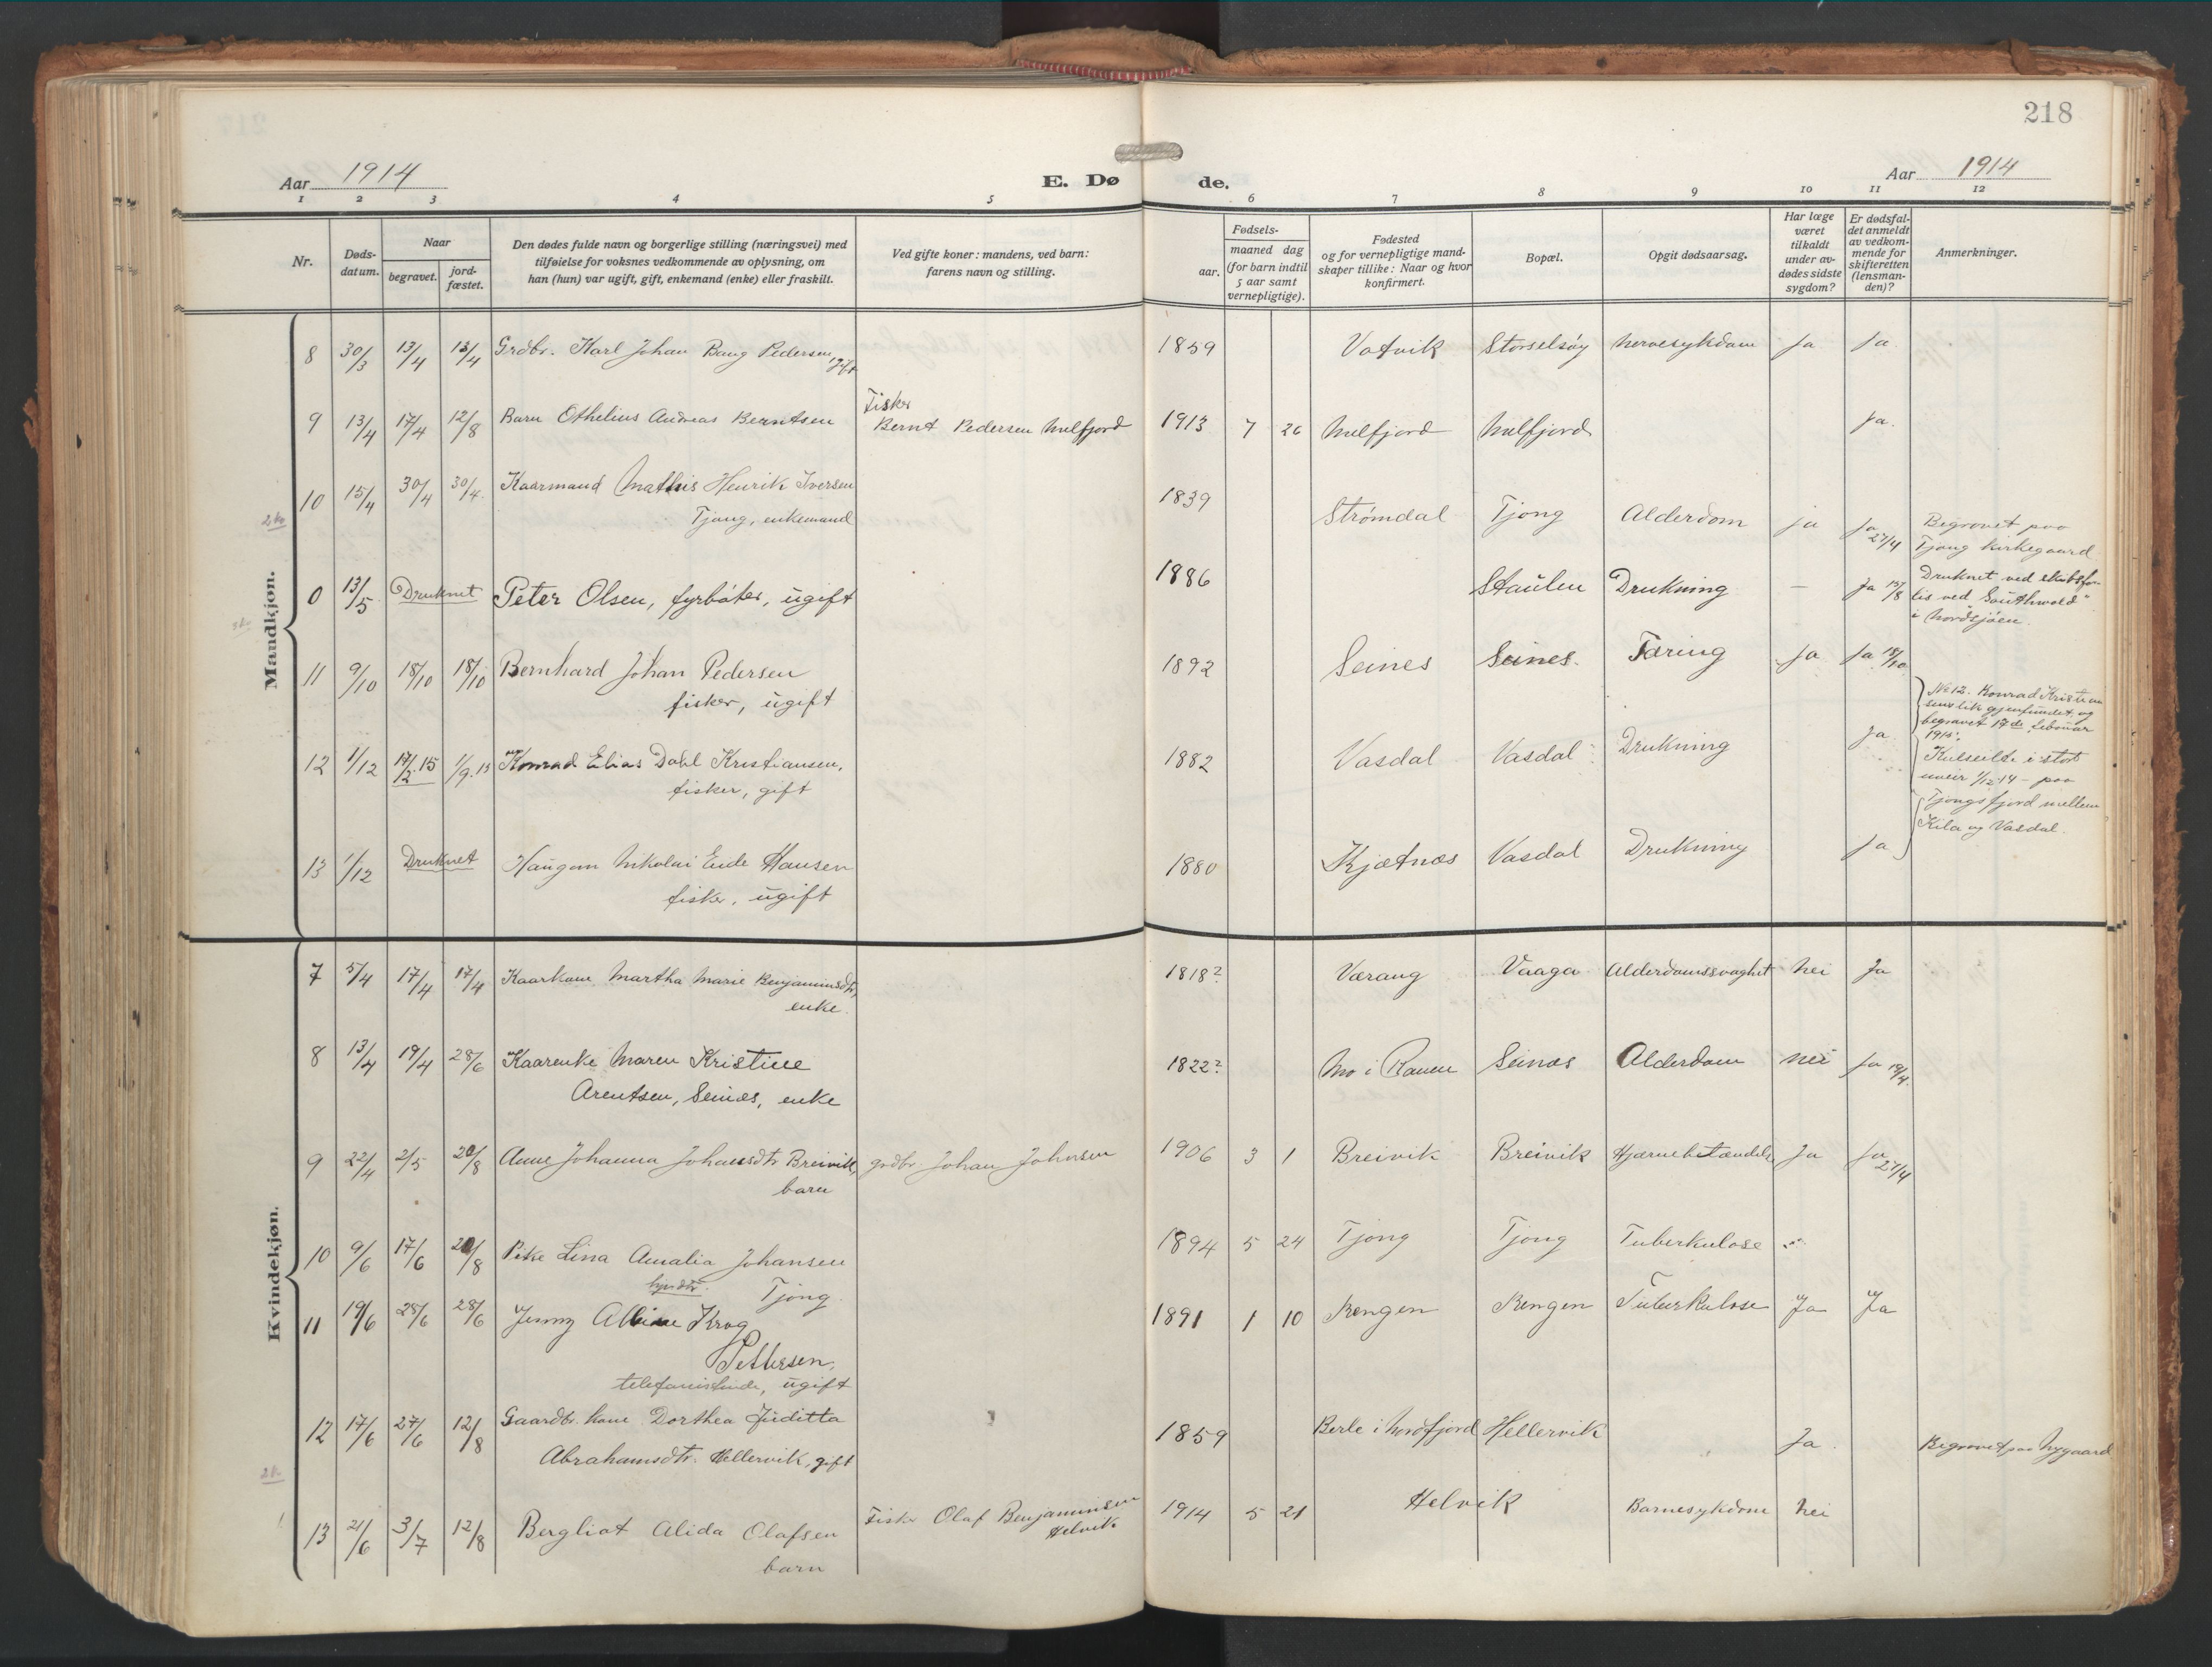 218
Aar 1914
E. Dø de.
Aar 1914
1 2 3 4 5 6 7 8 9 10 11 12
Nr.
Døds-
datum.
Naar
begravet.
jord-
fæstet.
Den dødes fulde navn og borgerlige stilling (næringsvei) med
tilføielse for voksnes vedkommende av oplysning, om
han (hun) var ugift, gift, enkemand (enke) eller fraskilt.
Ved gifte koner: mandens, ved barn:
farens navn og stilling.
Fødsels-
aar.
maaned dag
(for barn indtil
5 aar samt
vernepligtige).
Fødested
og for vernepligtige mand-
skaper tillike: Naar og hvor
konfirmert.
Bopæl.
Opgit dødsaarsag.
Har læge
været
tilkaldt
under av-
dødes sidste
sygdom?
Er dødsfal-
det anmeldt
av vedkom-
mende for
skifteretten
(lensman-
den)?
Anmerkninger.
Mandkjøn.
8 30/3 13/4 13/4 Grdbr. Karl Johan Bang Pedersen, gift 1859 Vatvik Storselsøy Nervesykdom Ja Ja
9 13/4 17/4 12/8 Barn Othelius Andreas Berntsen Fisker
Bernt Pedersen Melfjord 1913 7 26 Melfjord Melfjord Ja.
10 15/4 30/4 30/4 Kaarmand Mathis Henrik Iversen
Tjong, enkemand 1839 Strømdal Tjong Alderdom ja Ja 27/4 Begravet paa
Tjong kirkegaard
0 13/5 Druknet Peter Olsen, fyrbøter, ugift 1886 Staulen Drukning — Ja 15/8 Druknet ved skibsfor-
lis ved "Southwold"
i Nordsjøen.
11 9/10 18/10 18/10 Bernhard Johan Pedersen
fisker, ugift 1892 Seines Seines. Tæring Ja Ja 18/10
12 1/12 17/2.15 1/9.15 Konrad Elias Dahl Kristiansen,
fisker, gift 1882 Vasdal Vasdal Drukning Ja
No 12. Konrad Kristian
sens lik gjenfundet og
begravet 17de februar
1915.
Kulseilte i stort
uveir 1/12 14 - paa
Tjongsfjord mellem
Kila og Vasdal.
13 1/12 Druknet Haugom Nikolai Eude Hansen
fisker, ugift 1880 Kjætnæs Vasdal Drukning Ja
Kvindekjøn.
7 5/4 17/4 17/4 Kaarkone Martha Marie Benjaminsdtr,
enke. 1818? Værang Vaaga Alderdomssvaghet nei Ja
8 13/4 19/4 28/6 Kaarenke Maren Kristine
Arentsen, Seines, enke 1822? Mo i Ranen Seines Alderdom nei Ja 19/4.
9 22/4 2/5 20/8 Anne Johanna Johansdtr Breivik,
barn grdbr Johan Johnsen 1906 3 1 Breivik Breivik Hjernebetændelse Ja Ja 27/4
10 9/6 17/6 20/8 Pike Lina Amalia Johansen
Tjong. 1894 5 24 Tjong Tjong Tuberkulose
11 19/6 28/6 28/6 Jenny Albine Krog
Pettersen,
telefonistinde, ugift 1891 1 10 Rengen Rengen Tuberkulose Ja Ja
12 17/6 27/6 12/8 Gaardbr. kone Dorthea Juditta
Abrahamsdtr. Hellervik, gift 1859 Berle i Nordfjord Hellervik Ja. Begravet paa Nygaard
13 21/6 3/7 12/8 Bergliot Alida Olafsen
barn Fisker Olaf Benjaminsen
Helvik 1914 5 21 Helvik Barnesykdom nei